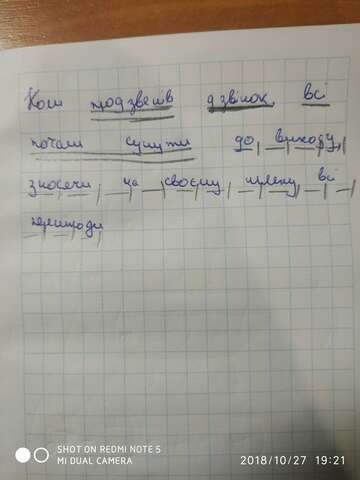 Коли продзвенів дзвінок, всі
почали сунути до виходу,
зносячи на своєму шляху всі
перешкоди
SHOT ON REDMI NOTE 5
MI DUAL CAMERA
2018/10/27 19:21